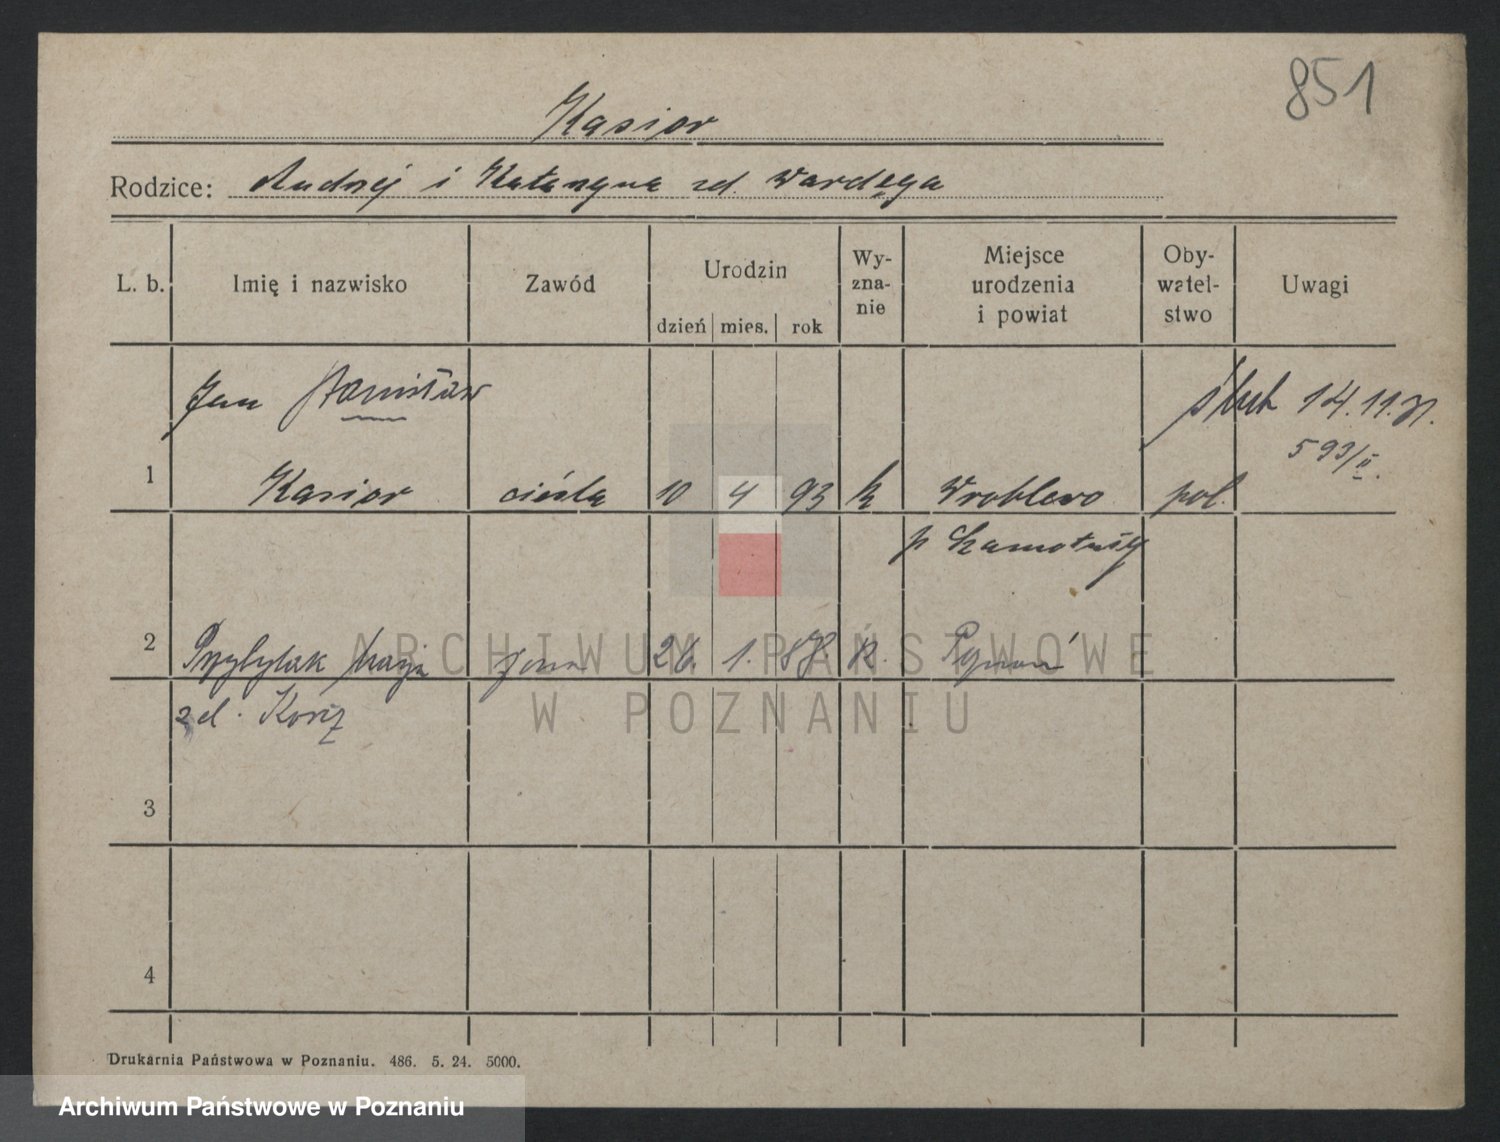 851
Kąsior
Rodzice: Andrzej i Katarzyna zd. Wardęga
L. b. Imię i nazwisko Zawód Urodzin dzień mies. rok Wy-zna-nie Miejsce urodzenia i powiat Oby-watel-stwo Uwagi
Jan Stanisław ślub 14.11.31.
593/II.
1 Kasior cieśla 10 4 93 k Wroblewo pol.
p Szamotuły
2 Przybylak Marja żona 26. 1. k. Poznań
zd.
3
4
Drukarnia Państwowa w Poznaniu. 486. 5. 24. 5000.
ARCHIWUM PAŃSTWOWE
W POZNANIU
Archiwum Państwowe w Poznaniu